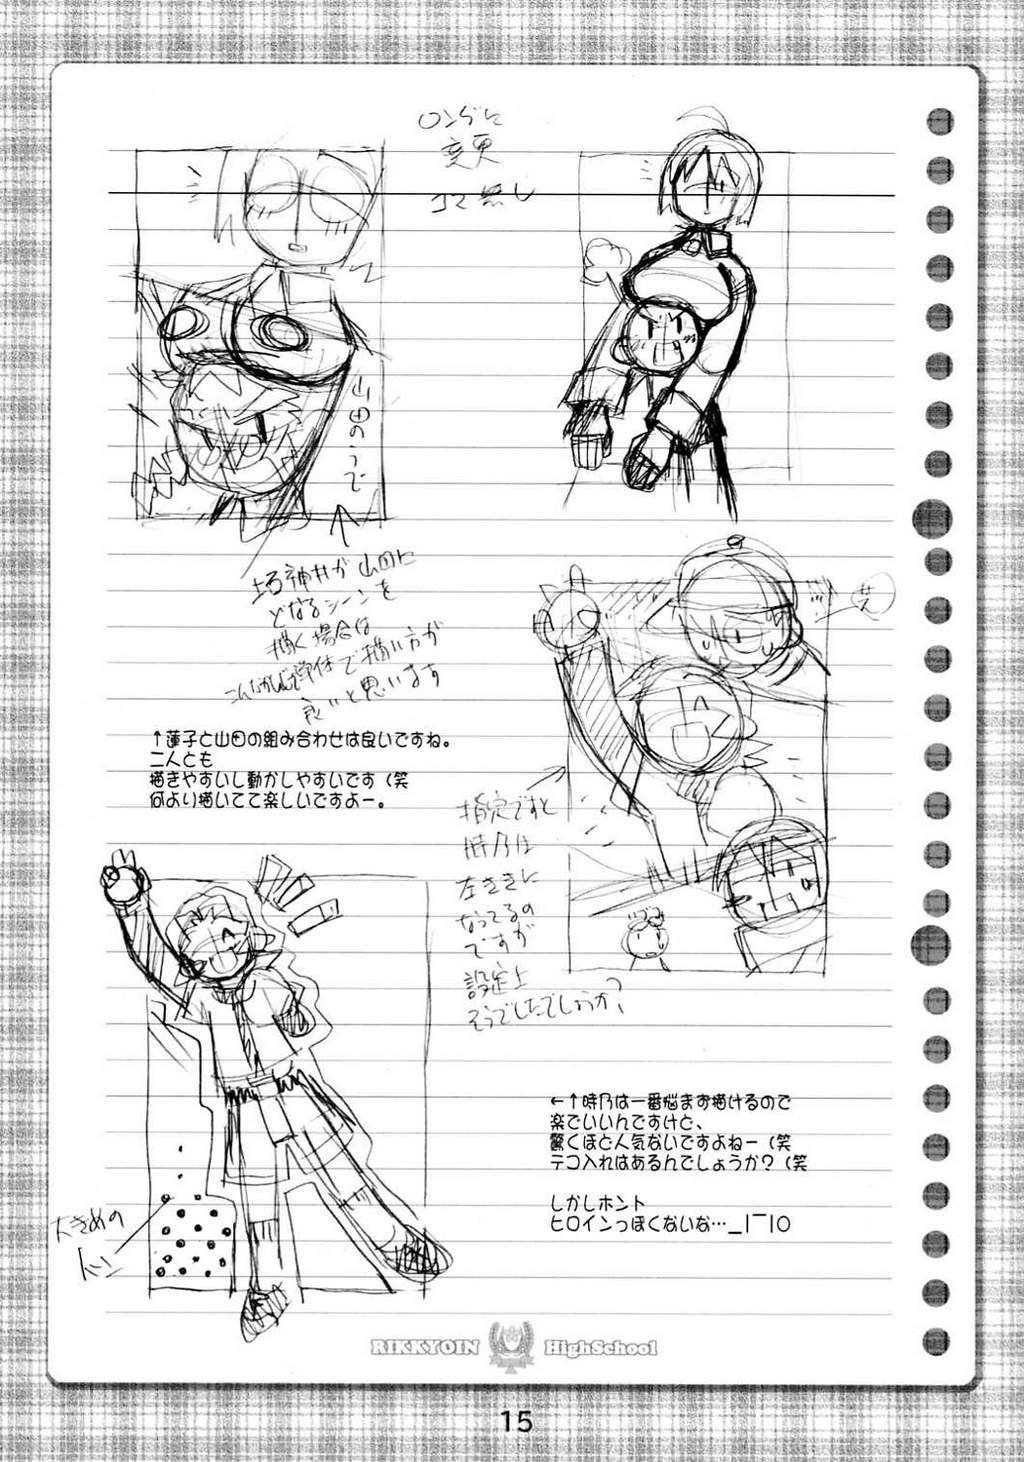 ロングに
変更
コマ無し
山田のうで
坂神井が山田に
どなるシーンを
描く場合は
描い方が
良いと思います
↑蓮子と山田の組み合わせは良いですね。
二人とも
描きやすいし動かしやすいです（笑
何より描いてて楽しいですよー。
指定ですと
時乃は
左ききに
なってるの
ですが
設定上
そうでしたでしょうか?
大きめの
トーン
←↑時乃は一番悩まず描けるので
楽でいいんですけど、
驚くほど人気ないですよねー（笑
テコ入れはあるんでしょうか？（笑
しかしホント
ヒロインっぽくないな…_|￣|○
RIKKYOIN HighSchool
15